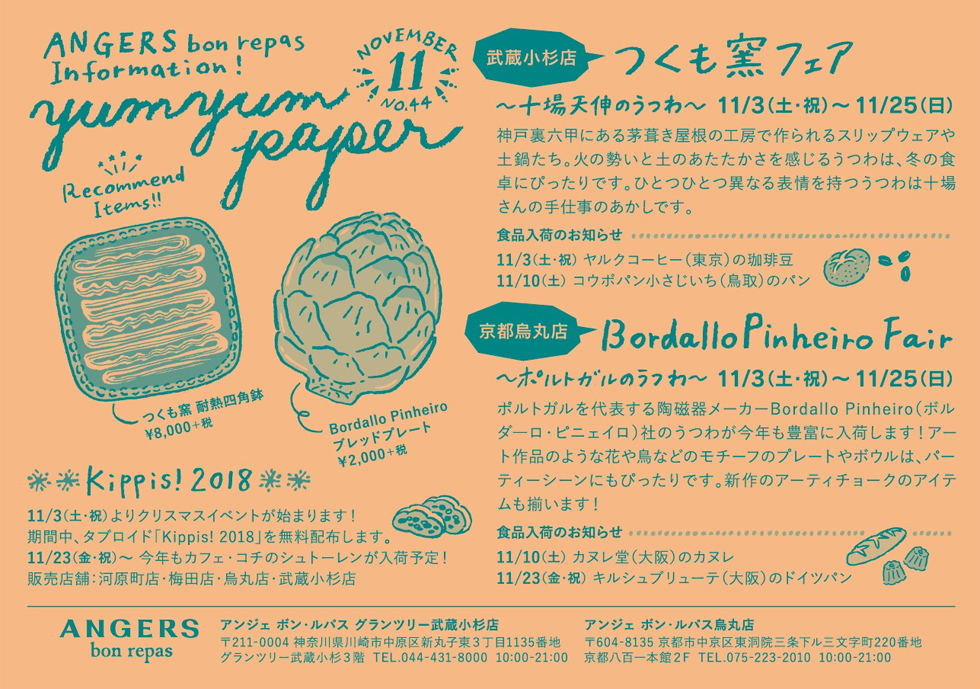 ANGERS bon repas
Information!
yumyum
paper
NOVEMBER
11
NO.44
Recommend
Items!!
つくも窯 耐熱四角鉢
¥8,000+税
Bordallo Pinheiro
ブレッドプレート
¥2,000+税
Kippis! 2018
11/3(土・祝)よりクリスマスイベントが始まります!
期間中、タブロイド「Kippis! 2018」を無料配布します。
11/23(金・祝)〜 今年もカフェ・コチのシュトーレンが入荷予定!
販売店舗:河原町店・梅田店・烏丸店・武蔵小杉店
武蔵小杉店
つくも窯フェア
〜十場天伸のうつわ〜 11/3(土・祝)〜11/25(日)
神戸裏六甲にある茅葺き屋根の工房で作られるスリップウェアや
土鍋たち。火の勢いと土のあたたかさを感じるうつわは、冬の食
卓にぴったりです。ひとつひとつ異なる表情を持つうつわは十場
さんの手仕事のあかしです。
食品入荷のお知らせ
11/3(土・祝) ヤルクコーヒー(東京)の珈琲豆
11/10(土) コウボパン小さじいち(鳥取)のパン
京都烏丸店
Bordallo Pinheiro Fair
〜ポルトガルのうつわ〜 11/3(土・祝)〜11/25(日)
ポルトガルを代表する陶磁器メーカーBordallo Pinheiro(ボル
ダーロ・ピニェイロ)社のうつわが今年も豊富に入荷します!アー
ト作品のような花や鳥などのモチーフのプレートやボウルは、パー
ティーシーンにもぴったりです。新作のアーティチョークのアイテ
ムも揃います!
食品入荷のお知らせ
11/10(土) カヌレ堂(大阪)のカヌレ
11/23(金・祝) キルシュブリューテ(大阪)のドイツパン
ANGERS
bon repas
アンジェ ボン・ルパス グランツリー武蔵小杉店
〒211-0004 神奈川県川崎市中原区新丸子東3丁目1135番地
グランツリー武蔵小杉3階 TEL.044-431-8000 10:00-21:00
アンジェ ボン・ルパス烏丸店
〒604-8135 京都市中京区東洞院三条下ル三文字町220番地
京都八百一本館2F TEL.075-223-2010 10:00-21:00